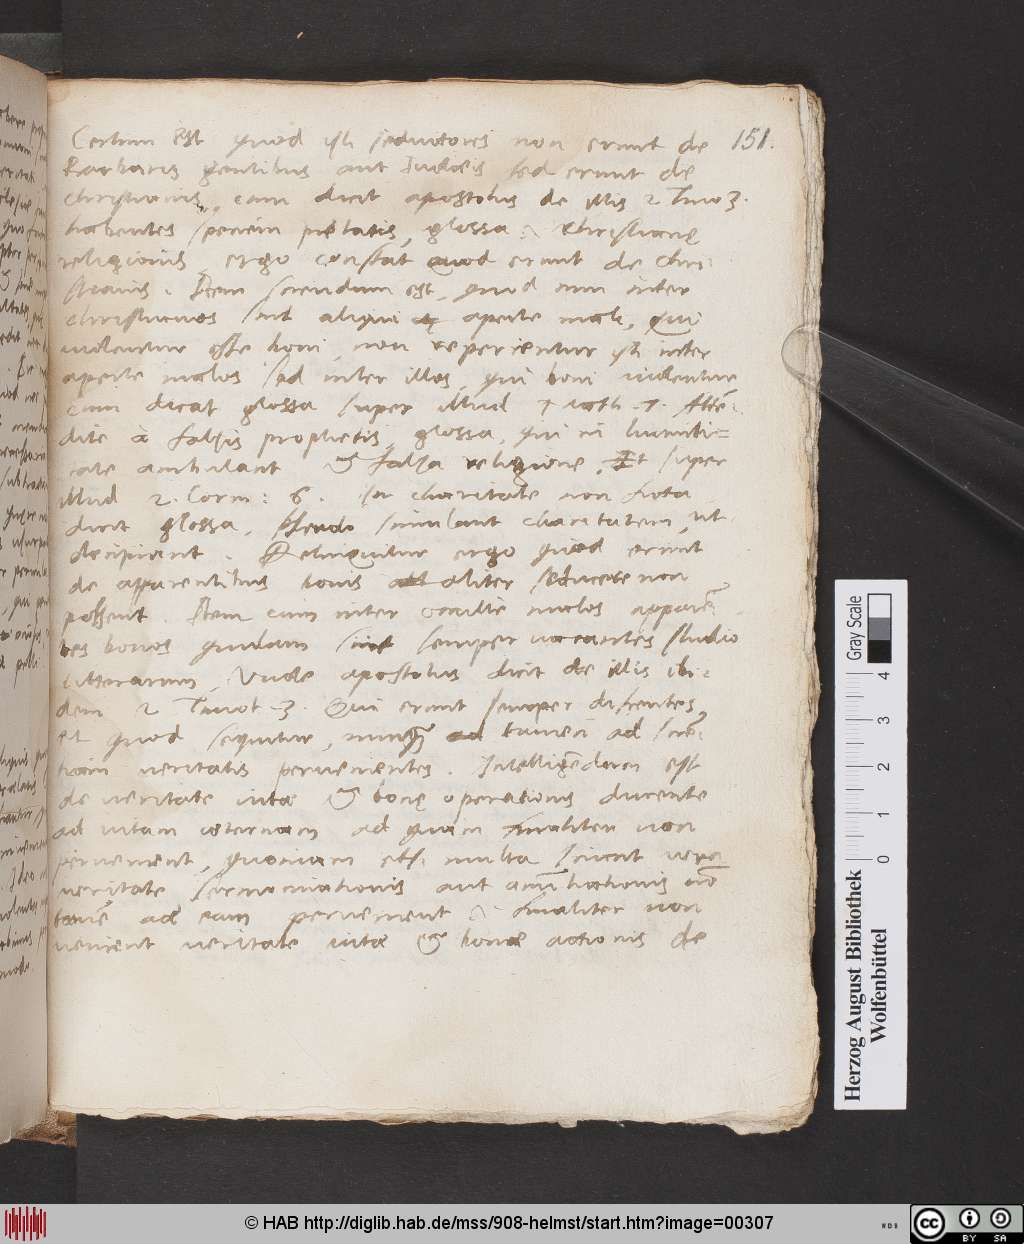 151.
Certum est quod isti seductores non erunt de
Barbaris gentibus aut Iudæis sed erunt de
christianis, cum dicit apostolus de illis 2 Timo 3.
habentes speciem pietatis, glossa christianę
religionis, ergo constat quod erunt de chri-
stianis. Item sciendum est, quod cum inter
christianos sint aliqui aperte mali, qui
videntur esse boni, non reperientur isti inter
aperte malos sed inter illos, qui boni videntur
cum dicat glossa super illud Math. 7. Attē-
dite à falsis prophetis, glossa, qui in humili=
tate ambulant & falsa religione, Et super
illud 2. Corin: 6. In charitate non ficta
dicit glossa, Pseudo simulant charitatem, ut
decipiant. Relinquitur ergo quod erunt
de apparentibus bonis aliter seducere non
possent. Item cum inter occulte malos apparē-
tes bonos quidam sint semper vacantes studio
litterarum, Vnde apostolus dicit de illis ibi-
dem 2 Timot. 3. Qui erunt semper discentes,
et quod sequitur, nunquam tamen ad sciē-
tiam veritatis pervenientes. Intelligēdum est
de veritate vitæ & bonę operationis ducente
ad vitam æternam ad quam finaliter non
pervenient, quoniam etsi multa sciunt vera
veritate sermocinationis aut
tamē ad eam pervenient finaliter non
venient veritate vitæ & bonæ actionis de
Gray Scale
0 1 2 3 4
Herzog August Bibliothek
Wolfenbüttel
© HAB http://diglib.hab.de/mss/908-helmst/start.htm?image=00307
WDB
cc
BY SA